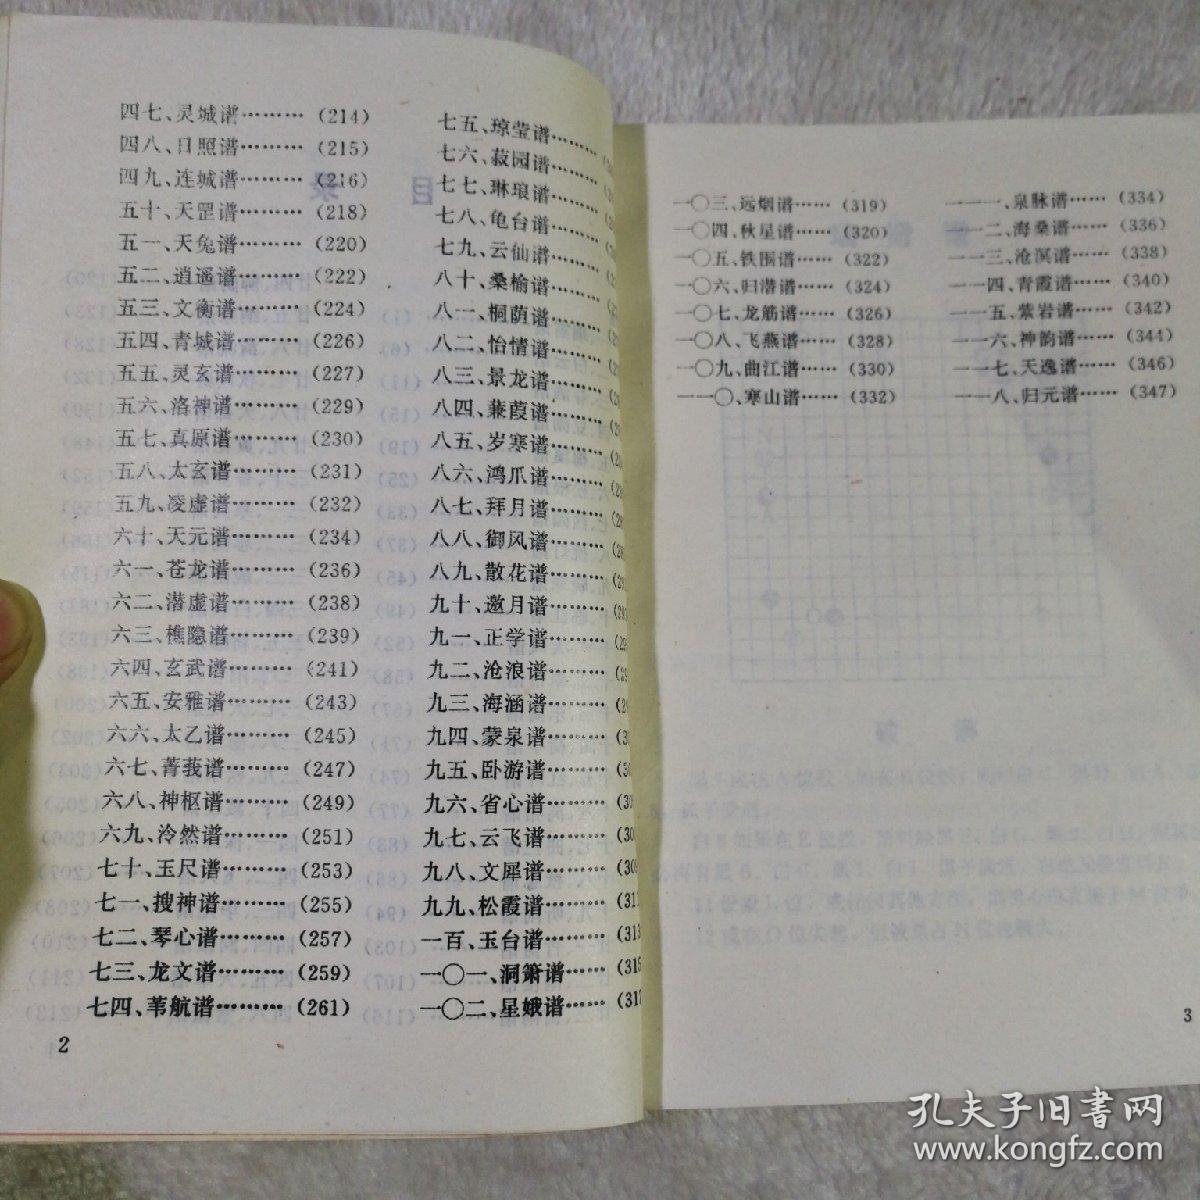 四七、灵城谱………(214)
四八、日照谱………(215)
四九、连城谱………(216)
五十、天罡谱………(218)
五一、天兔谱………(220)
五二、逍遥谱………(222)
五三、文衡谱………(224)
五四、青城谱………(226)
五五、灵玄谱………(227)
五六、洛神谱………(229)
五七、真原谱………(230)
五八、太玄谱………(231)
五九、凌虚谱………(232)
六十、天元谱………(234)
六一、苍龙谱………(236)
六二、潜虚谱………(238)
六三、樵隐谱………(239)
六四、玄武谱………(241)
六五、安雅谱………(243)
六六、太乙谱………(245)
六七、菁莪谱………(247)
六八、神枢谱………(249)
六九、泠然谱………(251)
七十、玉尺谱………(253)
七一、搜神谱………(255)
七二、琴心谱………(257)
七三、龙文谱………(259)
七四、苇航谱………(261)
2
七五、琼莹谱………
七六、菽园谱………
七七、琳琅谱………
七八、龟台谱………
七九、云仙谱………
八十、桑榆谱………
八一、桐荫谱………
八二、怡情谱………
八三、景龙谱………
八四、蒹葭谱………
八五、岁寒谱………
八六、鸿爪谱………
八七、拜月谱………
八八、御风谱………
八九、散花谱………
九十、邀月谱………
九一、正学谱………
九二、沧浪谱………
九三、海涵谱………
九四、蒙泉谱………
九五、卧游谱………
九六、省心谱………
九七、云飞谱………
九八、文犀谱………
九九、松霞谱………
一百、玉台谱………(313
一〇一、洞箫谱……(315
一〇二、星娥谱……(317
一〇三、远烟谱……(319)
一〇四、秋星谱……(320)
一〇五、铁围谱……(322)
一〇六、归潜谱……(324)
一〇七、龙筋谱……(326)
一〇八、飞燕谱……(328)
一〇九、曲江谱……(330)
一一〇、寒山谱……(332)
一一一、泉脉谱……(334)
一一二、海桑谱……(336)
一一三、沧溟谱……(338)
一一四、青霞谱……(340)
一一五、紫岩谱……(342)
一一六、神韵谱……(344)
一一七、天逸谱……(346)
一一八、归元谱……(347)
3
孔夫子旧书网
www.kongfz.com